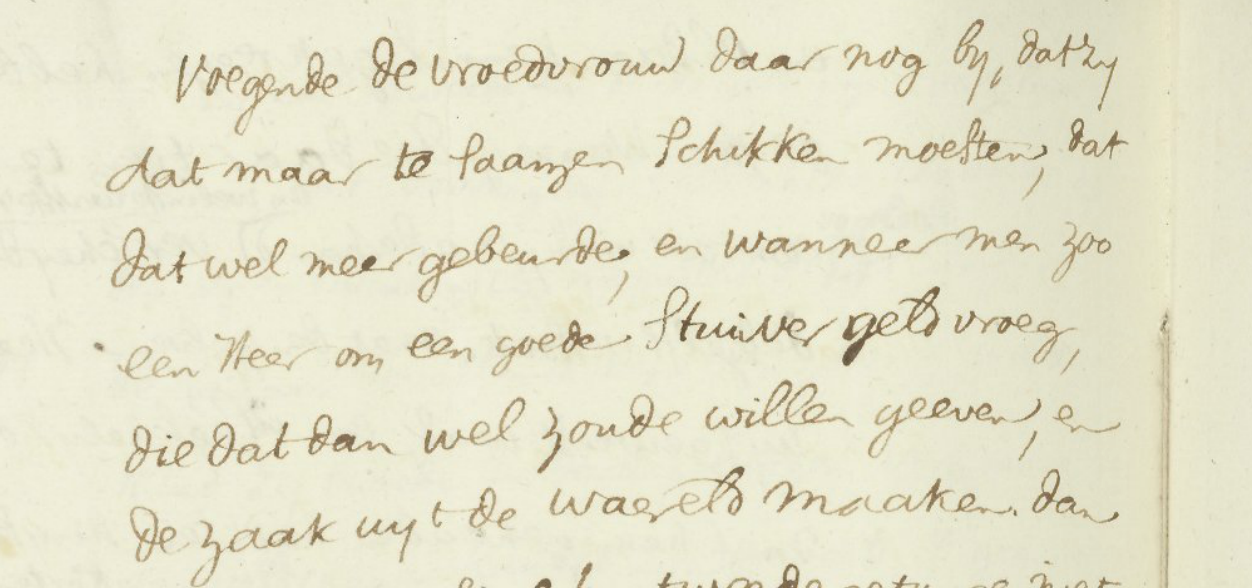 Voegende de vroedvrouw daar nog bij, dat zij
dat maar te saamen schikken moesten, dat
dat wel meer gebeurde, en wanneer men zoo
een Heer om een goede Stuiver geld vroeg,
die dat dan wel zoude willen geeven, en
de zaak uijt de waereld maaken. dan
tweede getuige niet